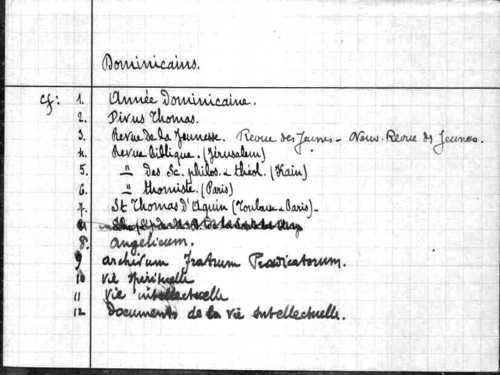 Dominicains.
cf: 1. Année Dominicaine.
2. Divus Thomas.
3. Revue de la Jeunesse. Revue des Jeunes - Nouv. Revue des Jeunes.
4. Revue biblique. (Jérusalem)
5. " des Sc. philos. & théol. (Kain)
6. " thomiste. (Paris)
7. St Thomas d'Aquin (Toulouse & Paris).
8. Angelicum.
9 archivum Fratrum Praedicatorum.
10 vie spirituelle
11 vie intellectuelle
12 Documents de la vie intellectuelle.